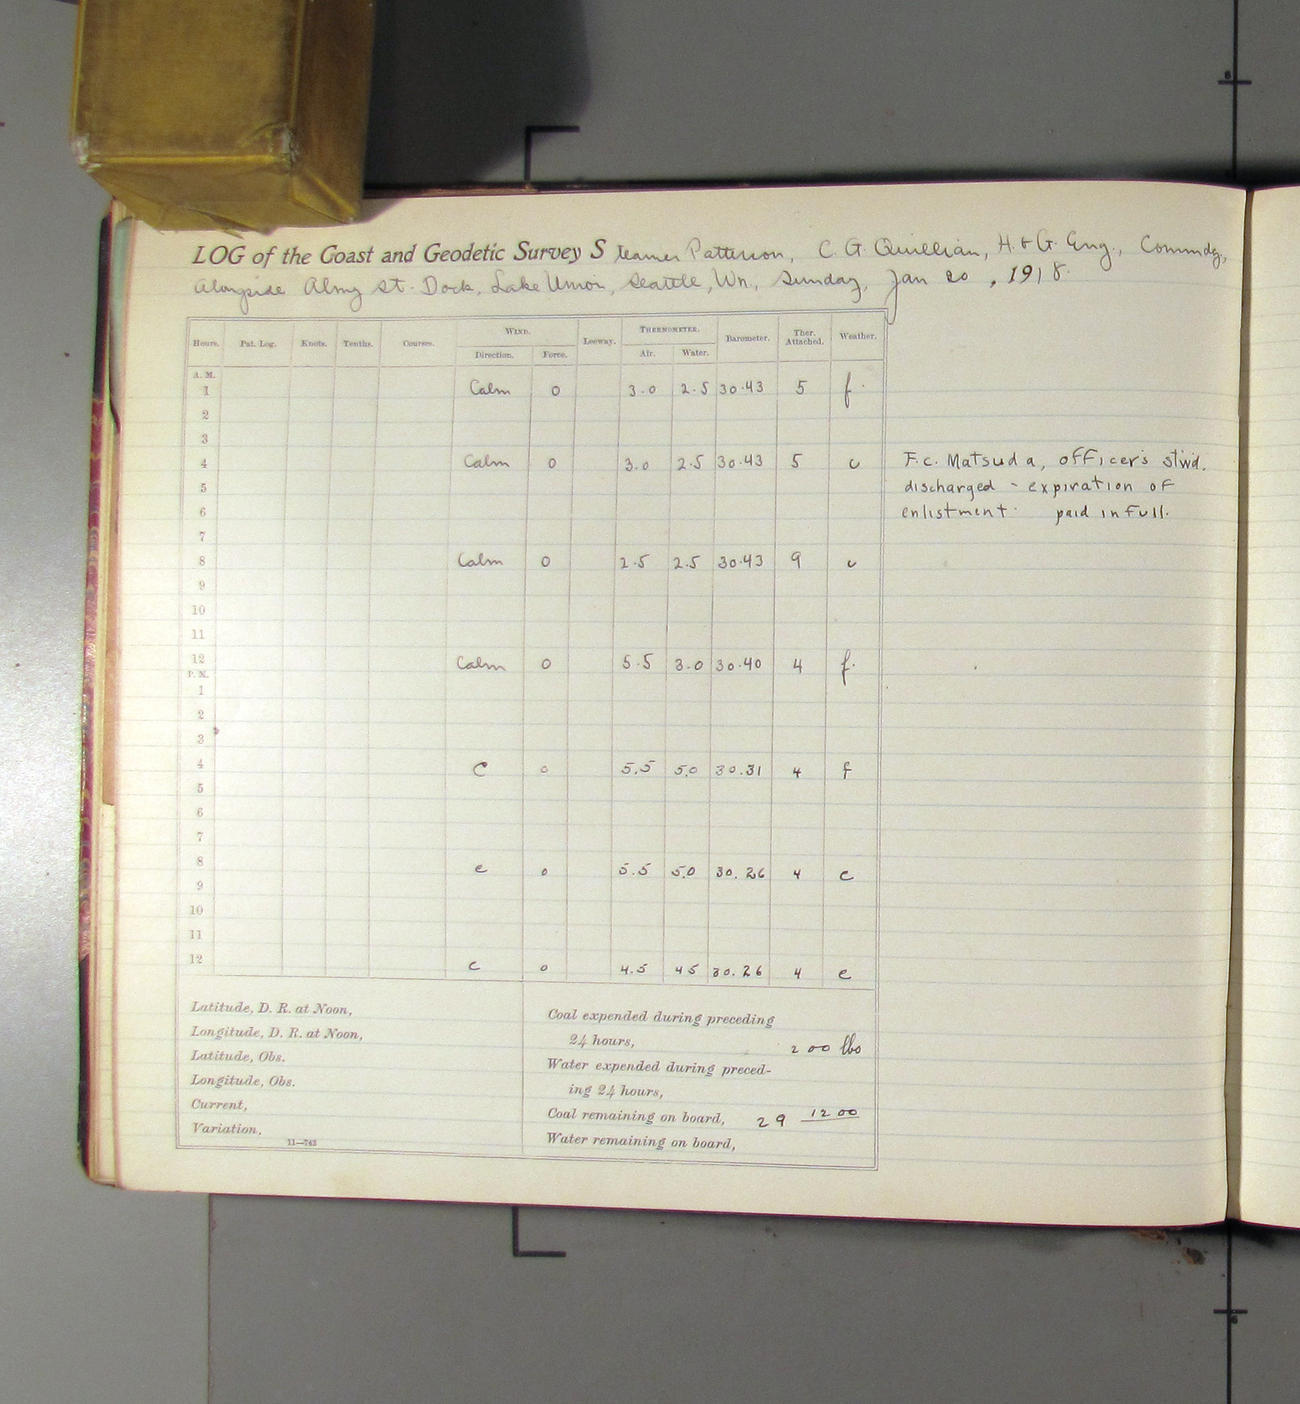 LOG of the Coast and Geodetic Survey Steamer Patterson, C. G. Quillian, H. & G. Eng., Commdg,
Alongside Almy St. Dock, Lake Union, Seattle, Wn., Sunday, Jan 20, 1918.
Hours. Pat. Log. Knots. Tenths. Courses. WIND. Leeway. THERMOMETER. Barometer. Ther. Attached. Weather.
Direction. Force. Air. Water.
A. M.
1 Calm 0 3.0 2.5 30.43 5 f.
2
3
4 Calm 0 3.0 2.5 30.43 5 c F.C. Matsuda, officer's stwd.
5 discharged - expiration of
6 enlistment. paid in full.
7
8 Calm 0 2.5 2.5 30.43 9 c
9
10
11
12 Calm 0 5.5 3.0 30.40 4 f.
P. M.
1
2
3
4 C 0 5.5 5.0 30.31 4 f
5
6
7
8 c 0 5.5 5.0 30.26 4 c
9
10
11
12 c 0 4.5 4 5 30.26 4 c
Latitude, D. R. at Noon,
Longitude, D. R. at Noon,
Latitude, Obs.
Longitude, Obs.
Current,
Variation.
11—743
Coal expended during preceding
24 hours, 200 lbs
Water expended during preced-
ing 24 hours,
Coal remaining on board, 29 1200
Water remaining on board,
6
6